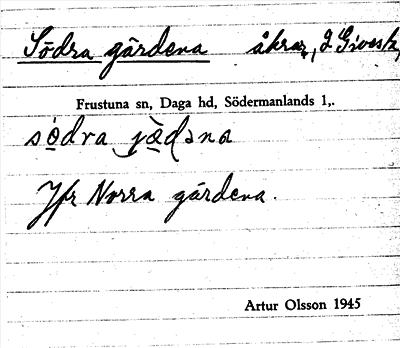 Södra gärdena åkrar,
Frustuna sn, Daga hd, Södermanlands l,.
södra jädəna
Jfr Norra gärdena.
Artur Olsson 1945